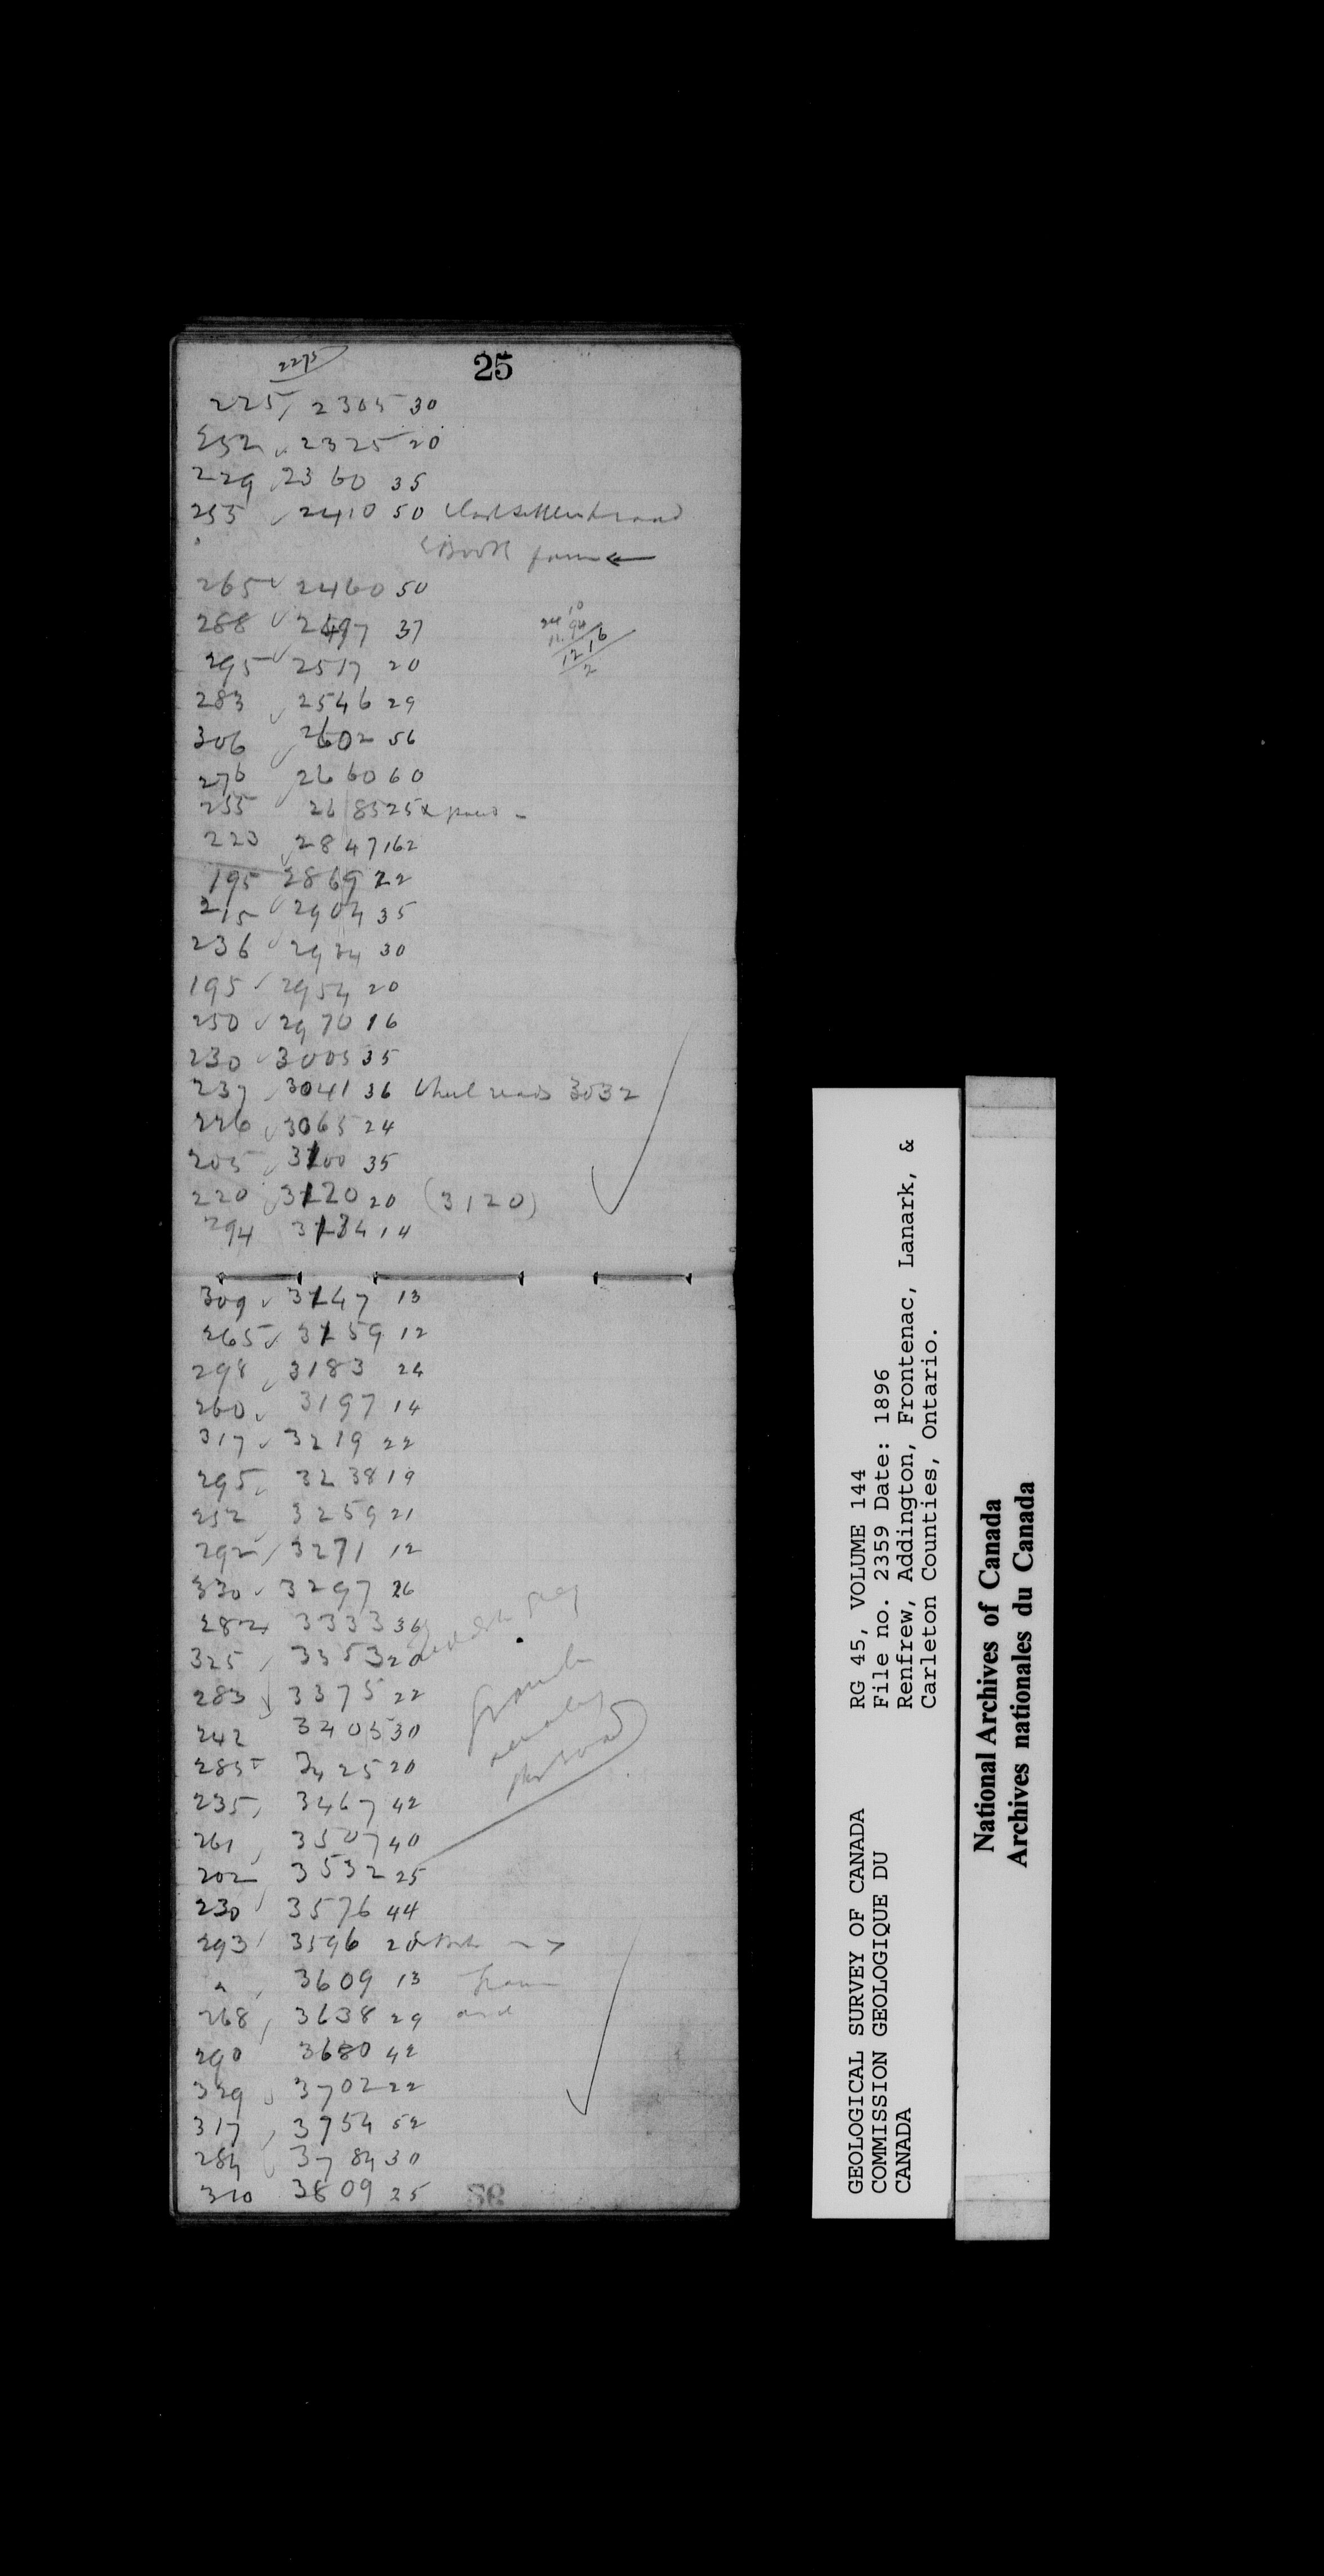 25
2275
225 2305 30
232 2325 20
229 2360 35
255 2410 50 road
Booth farm ←
265 2460 50
288 2497 37
295 2517 20
283 2546 29
306 2602 56
276 2660 60
255 2685 25
223 2847 162
195 2869 22
215 2904 35
236 2934 30
195 2954 20
250 2970 16
230 3005 35
237 3041 36 Wheel reads 3032
226 3065 24
205 3100 35
220 3120 20 (3120)
294 3134 14
309 3147 13
265 3159 12
298 3183 24
260 3197 14
317 3219 22
295 3238 19
252 3259 21
292 3271 12
330 3297 26
282 3333 36
325 3353 20
283 3375 22
242 3405 30
285 3425 20
235 3467 42
261 3507 40
202 3532 25
230 3576 44
293 3596 20
" 3609 13
268 3638 29 and
290 3680 42
329 3702 22
317 3754 52
284 3784 30
310 3809 25
GEOLOGICAL SURVEY OF CANADA
COMMISSION GEOLOGIQUE DU
CANADA
RG 45, VOLUME 144
File no. 2359 Date: 1896
Renfrew, Addington, Frontenac, Lanark, &
Carleton Counties, Ontario.
National Archives of Canada
Archives nationales du Canada